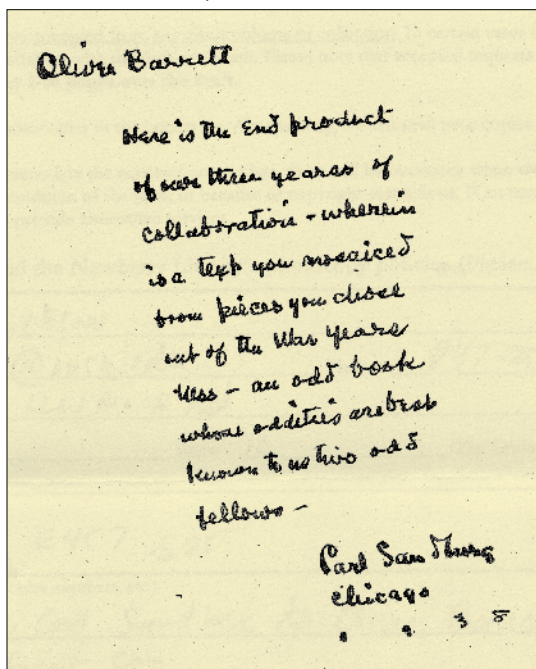 Oliver Barrett
Here is the end product
of over three years of
collaboration - wherein
is a text you mosaiced
from pieces you chose
out of the War Years
Mss - an odd book
whose oddities are best
known to us two odd
fellows -
Carl Sandburg
Chicago
1 9 3 8